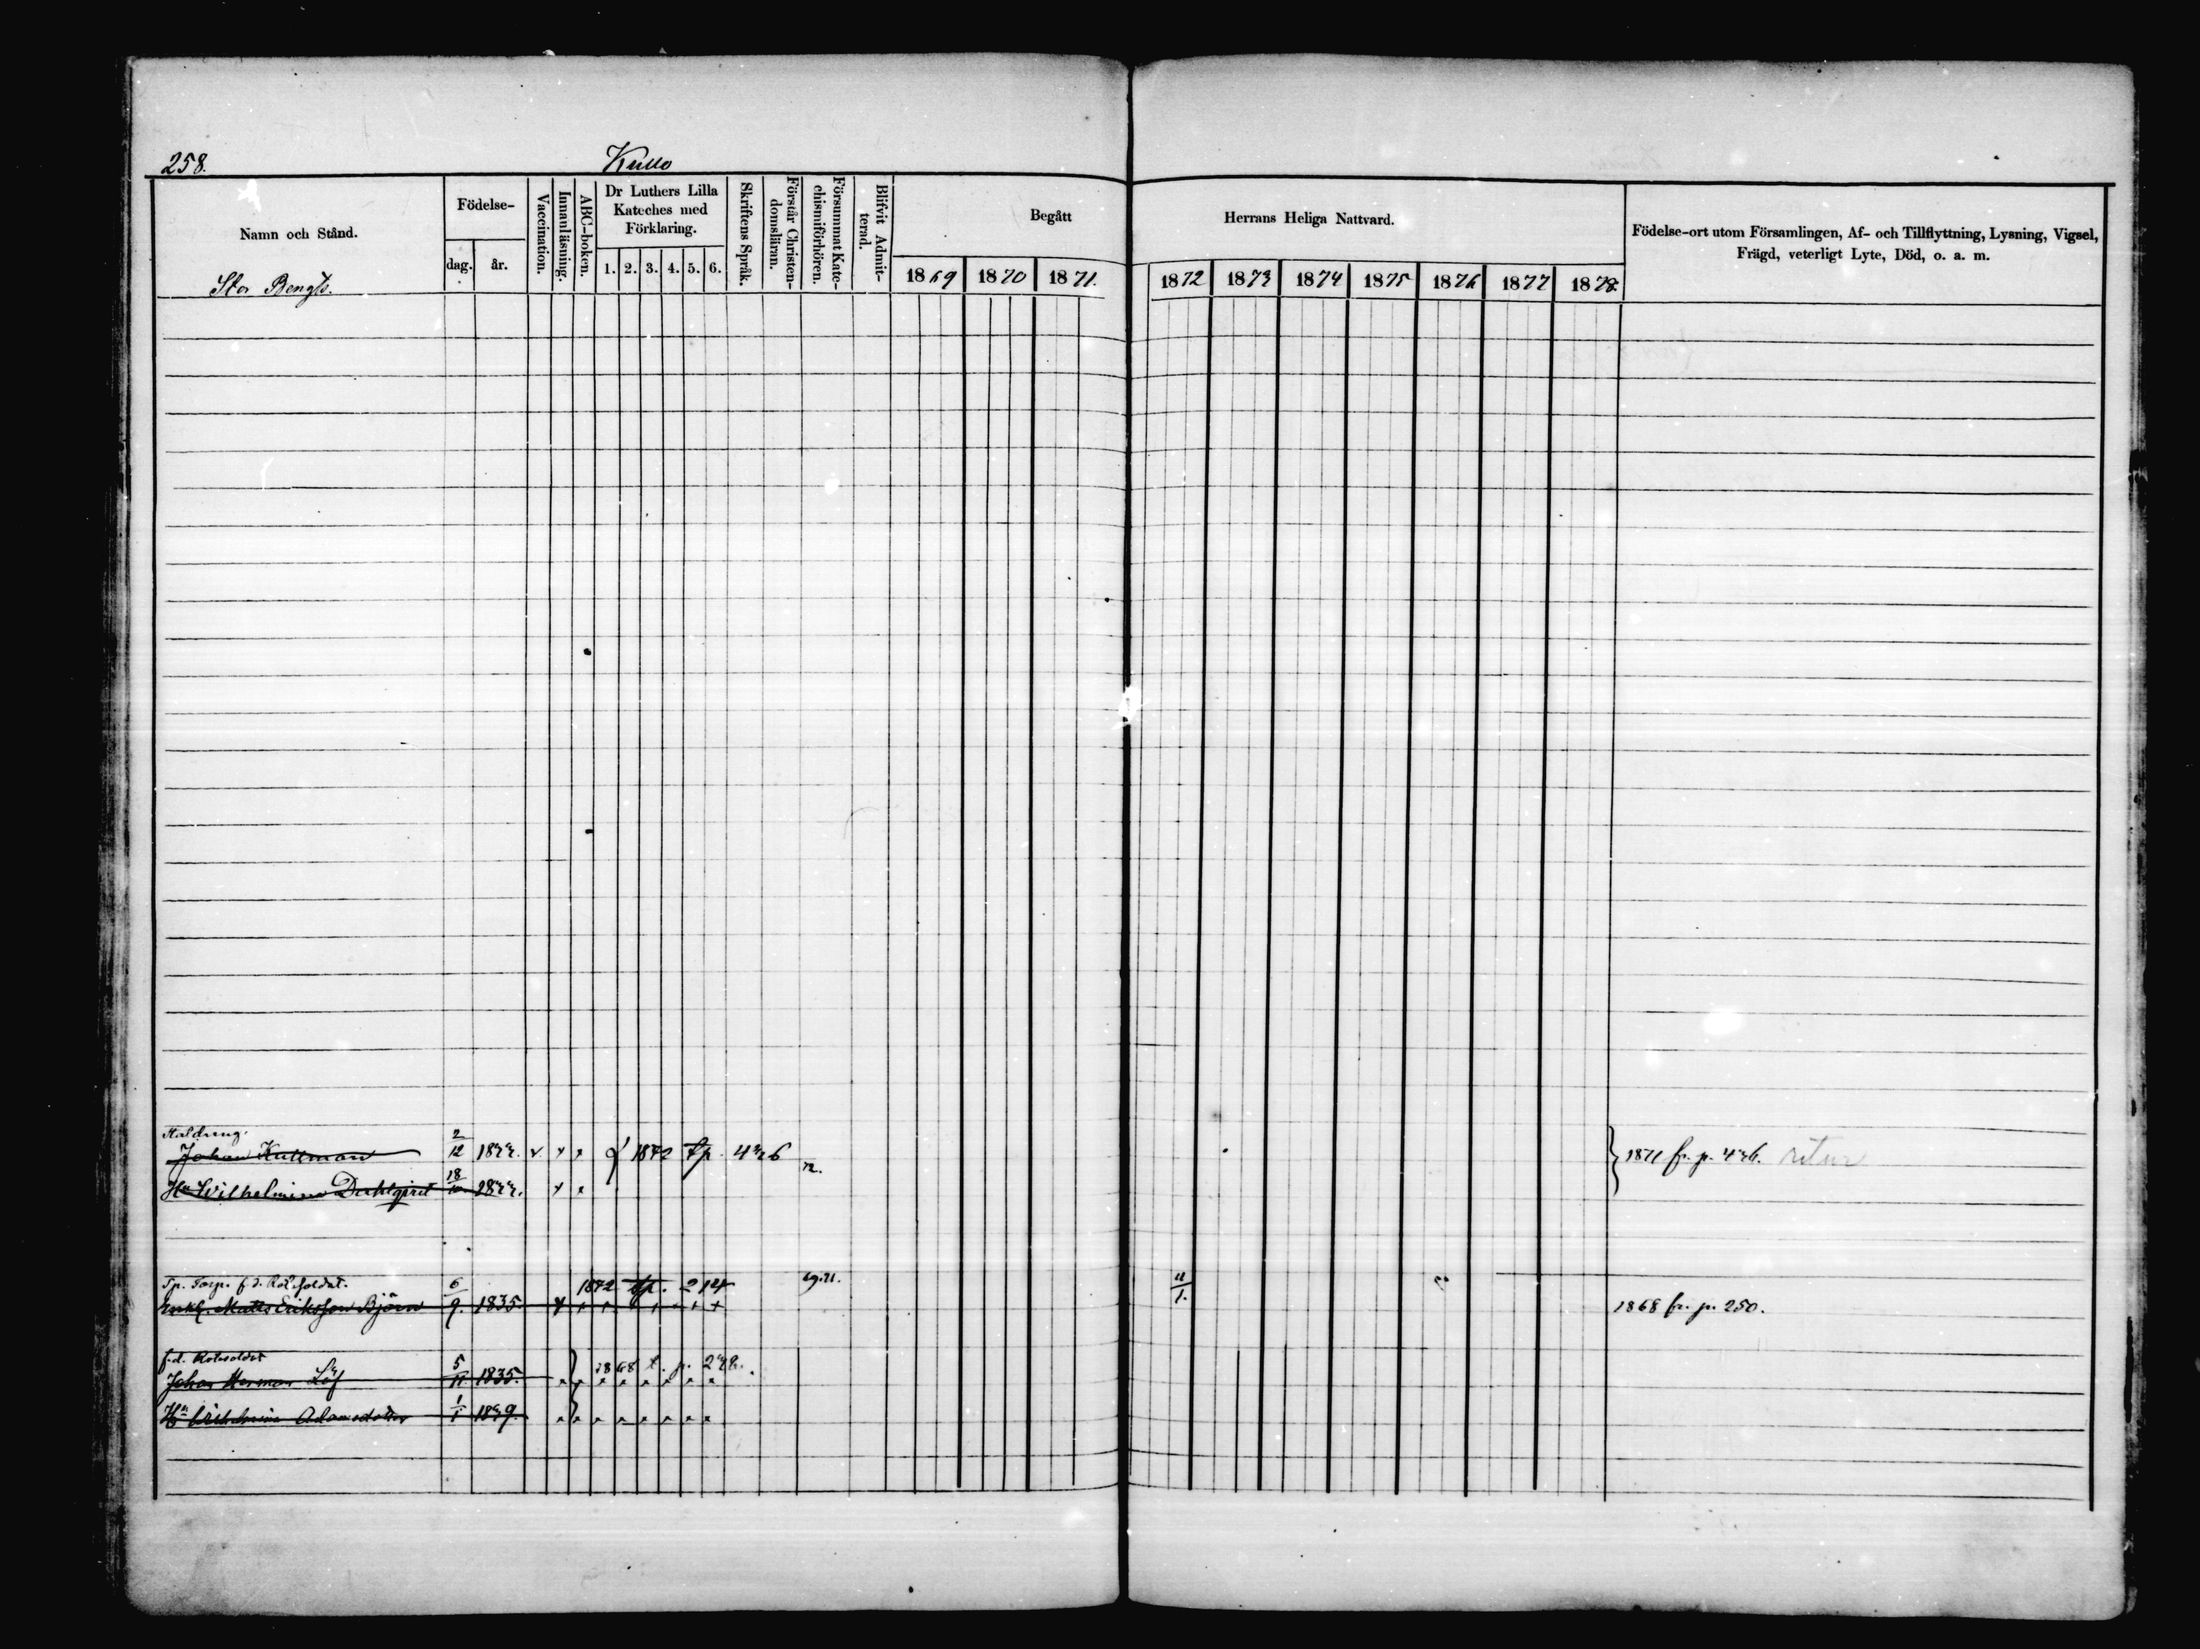 258.
Kullo
Namn och Stånd.
Födelse-
dag.
år.
Vaccination.
Innanläsning.
ABC-boken.
Dr Luthers Lilla
Kateches med
Förklaring.
1. 2. 3. 4. 5. 6.
Skriftens Språk.
Förstår Christen-
domsläran.
Försummat Kate-
chismiförhören.
Blifvit Admit-
terad.
Begått
Herrans Heliga Nattvard.
1869 1870 1871.
1872 1873 1874 1875 1876 1877 1878.
Födelse-ort utom Församlingen, Af- och Tillflyttning, Lysning, Vigsel,
Frägd, veterligt Lyte, Död, o. a. m.
Stor Bengts.
Johan Kullman 2/12
1871 fr. p.
Hu Wilhelmina 18
72.
Sp. Torp. f.d. Rotesoldat. 6
1872 tp. 214
69.71.
11/1.
Enkl. Matts Eriksson Björn 9. 1835.
1868 fr. p. 250.
f.d. Rotesoldat
Johan Herman Löf 5/11 1835.
1868 t. p.
Hu Wilhelmina Adamsdotter 1/1 1849.